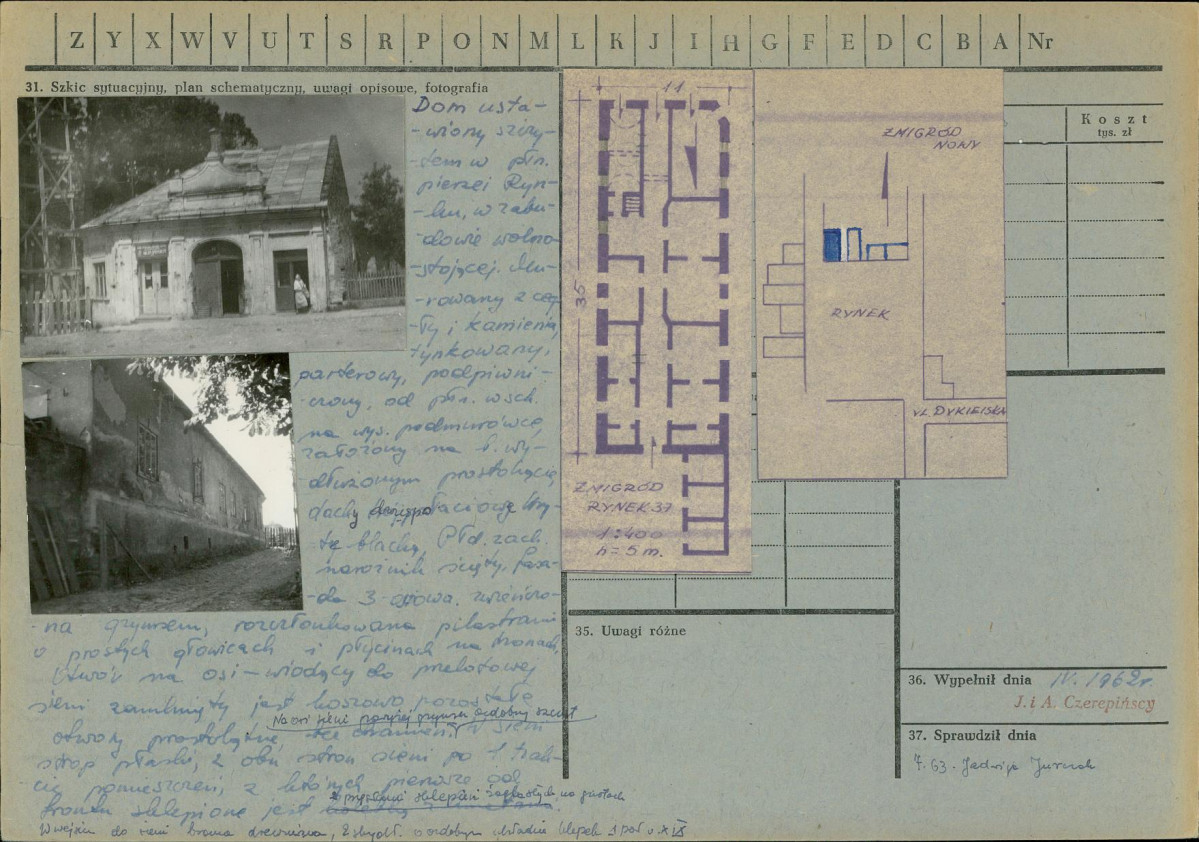 Z Y X W V U T S R P O N M L K J I H G F E D C B A Nr
31. Szkic sytuacyjny, plan schematyczny, uwagi opisowe, fotografia
Dom usta-
-wiony szczy-
tem w płn.
pierzei Ryn-
-ku, w zabu-
dowie wolno-
-stojącej. Mu-
-rowany z ceg-
-ły i kamienia,
tynkowany,
parterowy, podpiwni-
-czony, od płn. wsch.
na wys. podmurówce,
założony na b. wy-
-dłużonym prostokącie,
dachy kry-
-te blachą, Płd. zach.
narożnik ścięty, fasa-
-da 3-osiowa. zwieńczo-
-na gzymsem, rozczłonkowana pilastrami
o prostych głowicach i płycinach na tronach,
Otwór na osi-wiodący do przelotowej
sieni zamknięty jest koszowo, pozostałe
Na osi sieni powyżej gzymsu ozdobny szczyt
otwory prostokątne W sieni
strop płaski, z obu stron sieni po 1 trak-
cie pomieszczeń, z których pierwsze od
sklepień żaglastych na gurtach
frontu sklepione jest
W wejściu do sieni brama drewniana, 2 skrzydł. o ozdobnym układzie klepek 1 poł. w. XIX
11
35
ŻMIGRÓD
RYNEK 37
1:400
h = 5 m.
ŻMIGRÓD
NOWY
RYNEK
UL. DYKIELSKA
Koszt
tys. zł
35. Uwagi różne
36. Wypełnił dnia IV. 1962r.
J. i A. Czerepińscy
37. Sprawdził dnia
7.63. Jadwiga